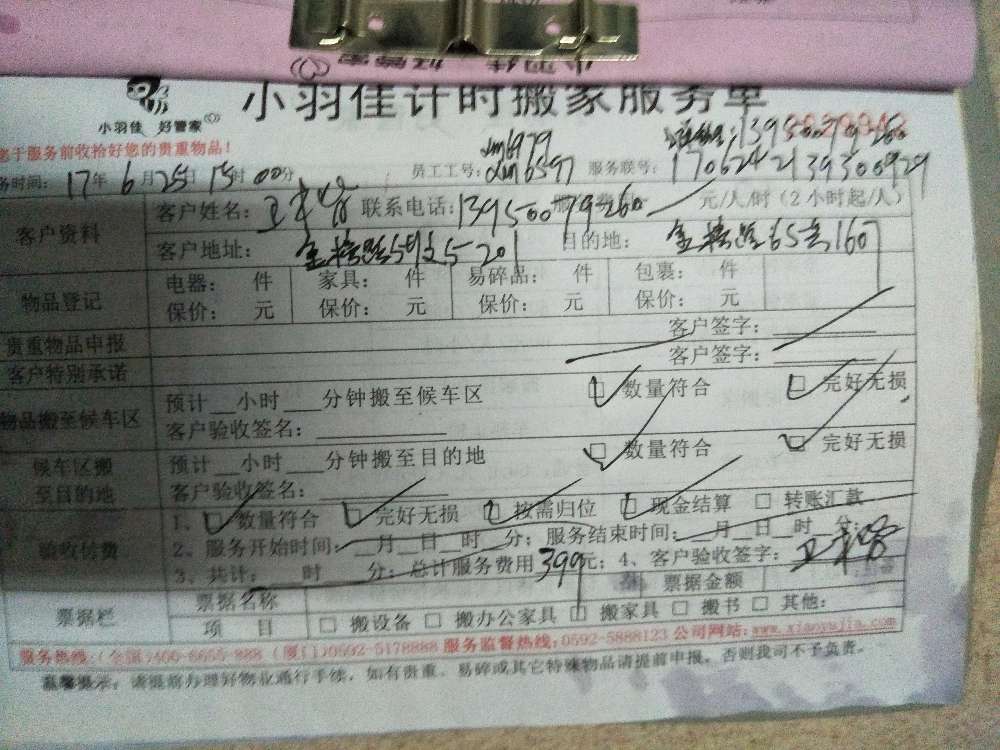 小羽佳计时搬家服务单
小羽佳 好管家
您于服务前收拾好您的贵重物品！
务时间：17年6月25日15时00分 员工工号：xm6979 xm6597 服务联号：170624213930
客户资料 客户姓名： 联系电话：13950079260 元/人/时（2小时起/人）
客户地址： 目的地：
物品登记 电器： 件 家具： 件 易碎品： 件 包裹： 件
保价： 元 保价： 元 保价： 元 保价： 元
贵重物品申报 客户签字：
客户特别承诺 客户签字：
物品搬至候车区 预计__小时___分钟搬至候车区 □ 数量符合 □ 完好无损
客户验收签名：
候车区搬至目的地 预计__小时___分钟搬至目的地 □ 数量符合 □ 完好无损
客户验收签名：
验收付费 1、□ 数量符合 □ 完好无损 □ 按需归位 □ 现金结算 □ 转账汇款
2、服务开始时间：__月__日__时__分；服务结束时间：__月__日__时__分；
3、共计：____时____分；总计服务费用399元；4、客户验收签字：
票据栏 票据名称 票据金额
项 目 □ 搬设备 □ 搬办公家具 □ 搬家具 □ 搬书 □ 其他：
服务热线：（全国）400-6655-888（厦门）0592-5178888 服务监督热线：0592-5888123 公司网站：www.xiaoyujia.com
温馨提示：请提前办理好物业通行手续，如有贵重、易碎或其它特殊物品请提前申报，否则我司不予负责。